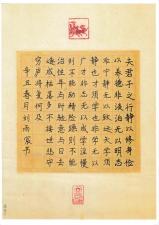 夫君子之行静以修身俭
以养德非淡泊无以明志
非宁静无以致远夫学须
静也才须学也非学无以
广才非志无以成学淫慢
则不能励精险躁则不能
治性年与时驰意与日去
遂成枯落多不接世悲守
穷庐将复何及
辛丑春月刘雨霖书